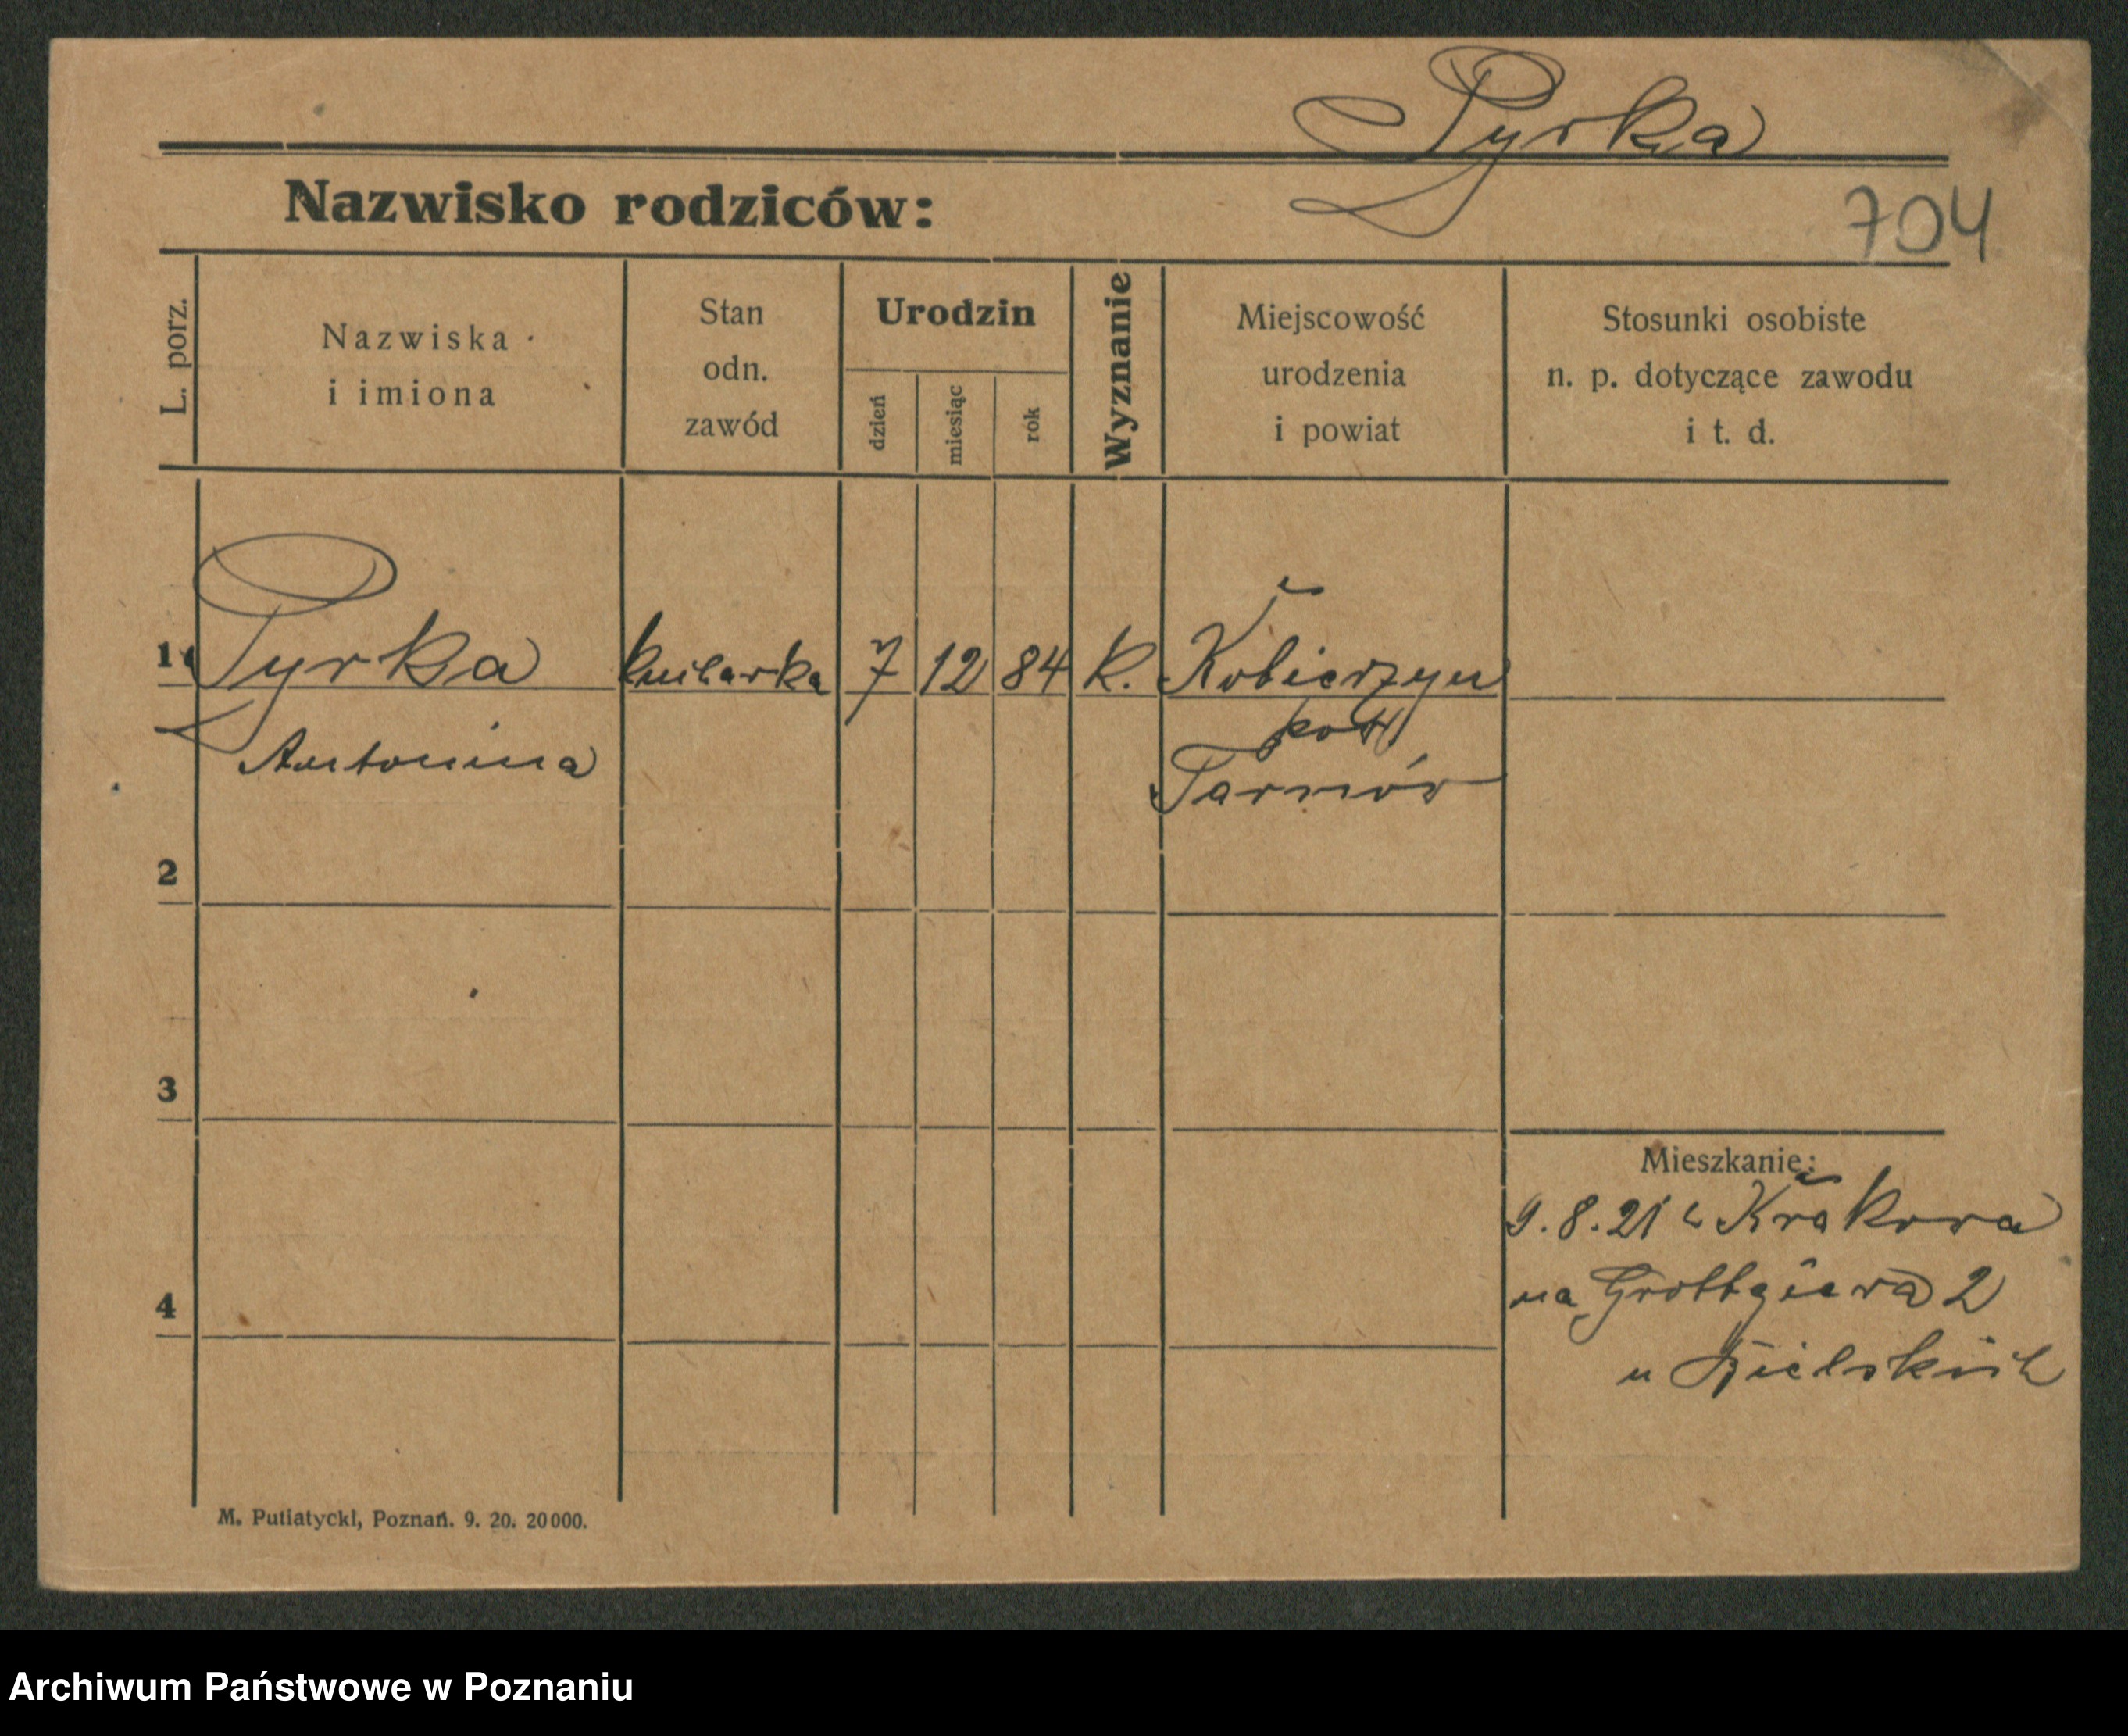 Pyrka
Nazwisko rodziców:
704
L. porz.
Nazwiska
i imiona
Stan
odn.
zawód
Urodzin
dzień
miesiąc
rok
Wyznanie
Miejscowość
urodzenia
i powiat
Stosunki osobiste
n. p. dotyczące zawodu
i t. d.
1 Pyrka kucharka 7 12 84 k. Kobierzyn
Antonina
Tarnów
2
3
4
Mieszkanie:
9.8.21 Krakowa
na Grottgiera 2
u Bielskich
M. Putiatycki, Poznań. 9. 20. 20000.
Archiwum Państwowe w Poznaniu